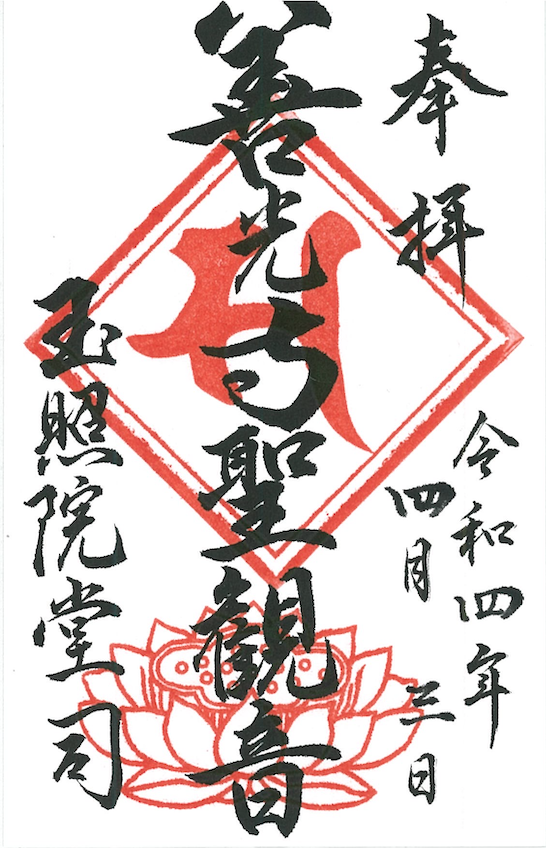 奉拝
令和四年
四月三日
善光寺聖観音
玉照院堂司